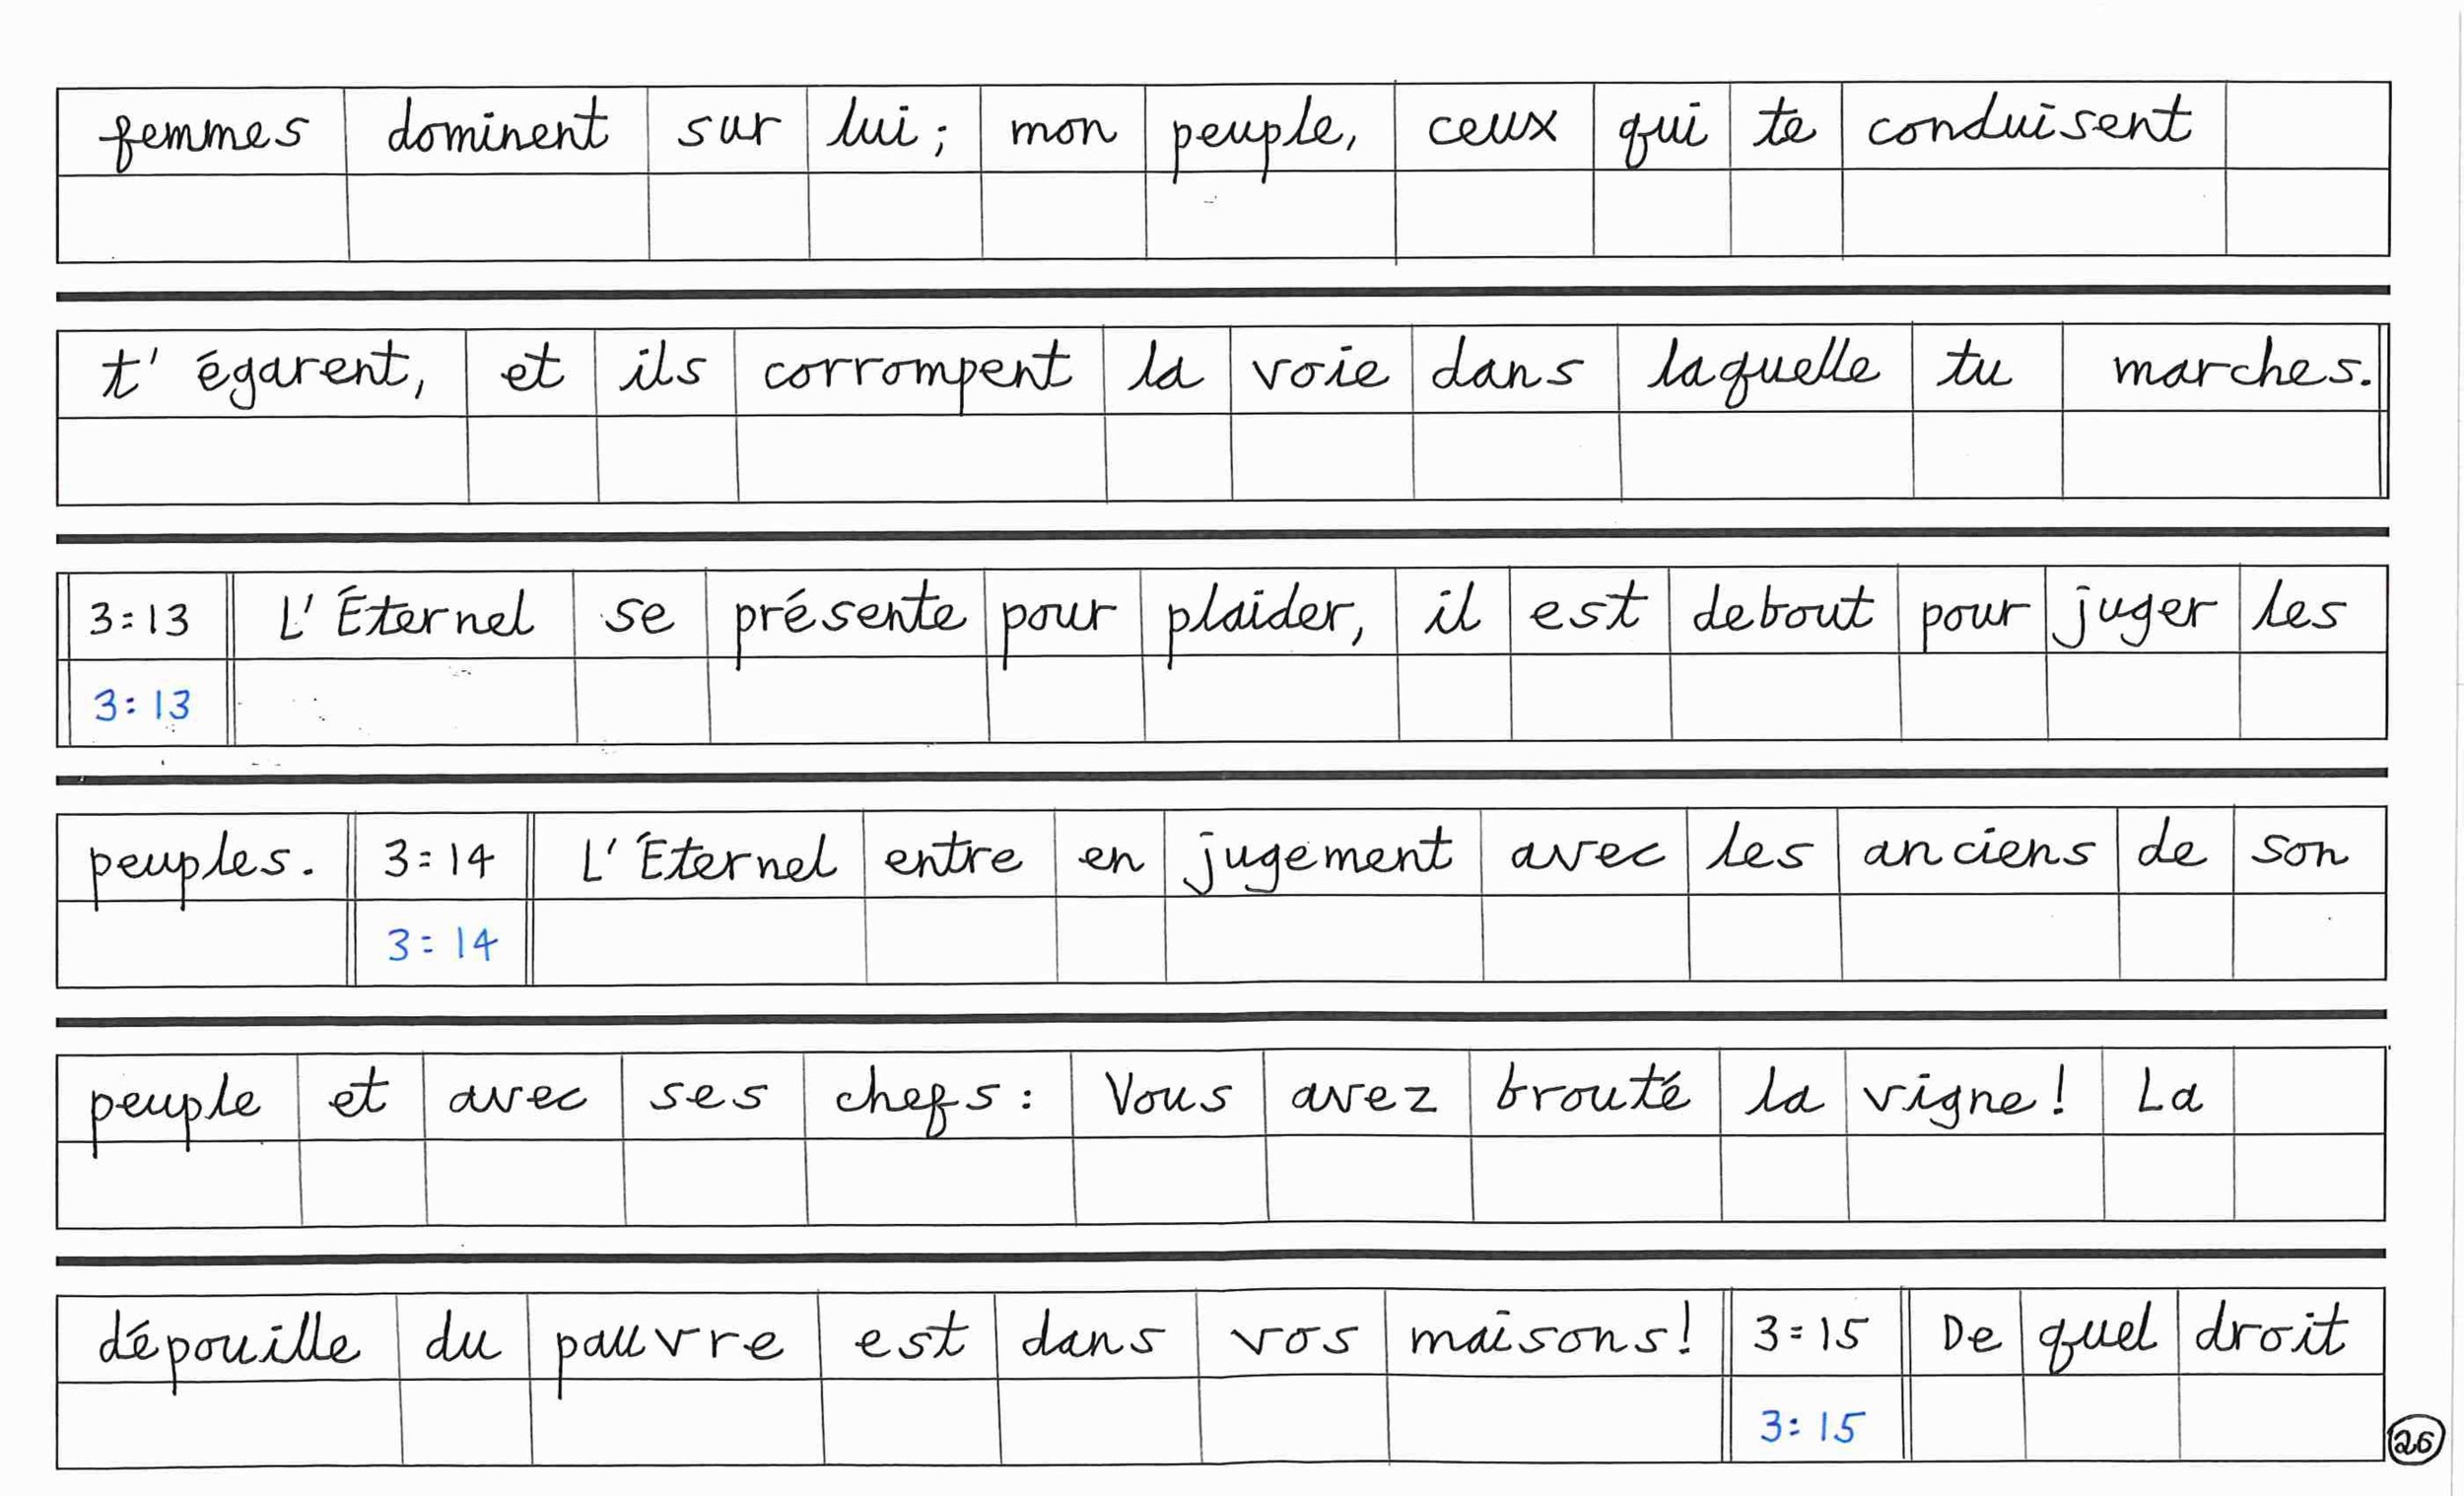 femmes dominent sur lui; mon peuple, ceux qui te conduisent
t' égarent, et ils corrompent la voie dans laquelle tu marches.
3:13 L'Éternel se présente pour plaider, il est debout pour juger les
3:13
peuples. 3:14 L'Éternel entre en jugement avec les anciens de son
3:14
peuple et avec ses chefs: Vous avez brouté la vigne! La
dépouille du pauvre est dans vos maisons! 3:15 De quel droit
3:15
26